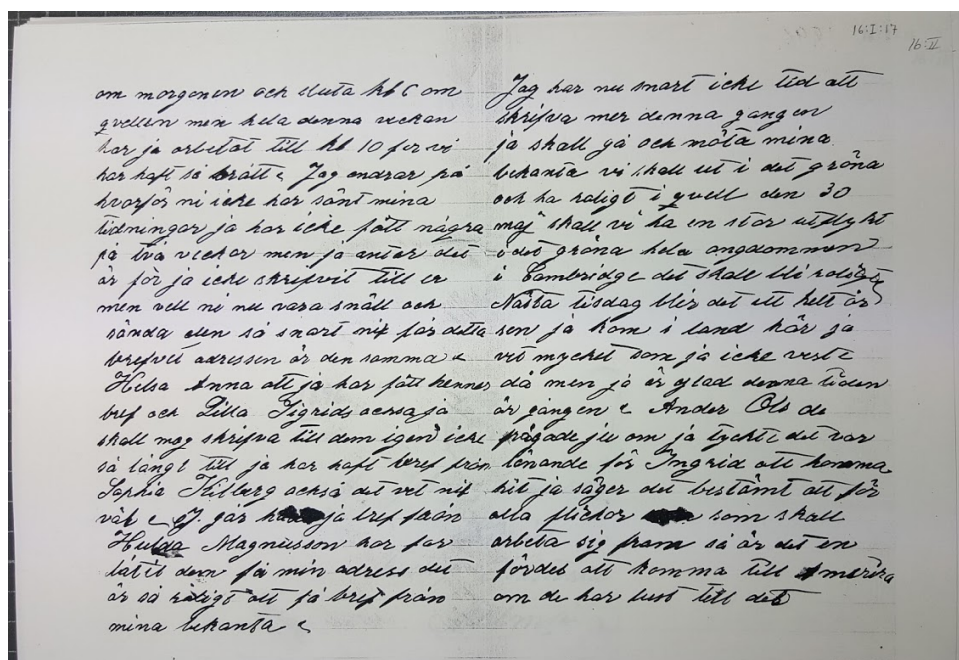 16:I:17
16:II
om morgonen och sluta kl 6 om
qvellen men hela denna veckan
har ja arbetat till kl 10 for vi
har haft så brått Jag undrar på
hvorför ni icke har sänt mina
tidningar ja har icke fått några
på två veckor men ja antar det
är för ja icke skrifvit till er
men vell ni nu vara snäll och
sända den så snart ni får detta
brefvet adressen är den samma
Helsa Anna att ja har fått hennes
bref och Lilla Sigrids ocksa ja
skall mog skrifva till dem igen icke
så långt till ja har haft bref från
Sophia Kilberg också det vet ni
väl I går ja bref från
Hulda Magnusson har for
låtit dem få min adress det
är så roligt att få bref från
mina bekanta
Jag har nu snart icke tid att
skrifva mer denna gangen
ja skall gå och möta mina
bekanta vi skall ut i det gröna
och ha roligt i qvell den 30
maj skall vi ha en stor utflykt
i det gröna hela ungdommen
i Cambridge det skall bli roligt
Nästa tisdag blir det ett helt år
sen ja kom i land här ja
vet mycket som ja icke veste
då men ja är glad denna tiden
är gången Ander Ols de
frågade ju om ja tyckte det var
lönande för Ingrid att komma
hit ja säger det bestämt att för
alla flickor som skall
arbeta sig fram så är det en
fördel att komma till Amerika
om de har lust till det